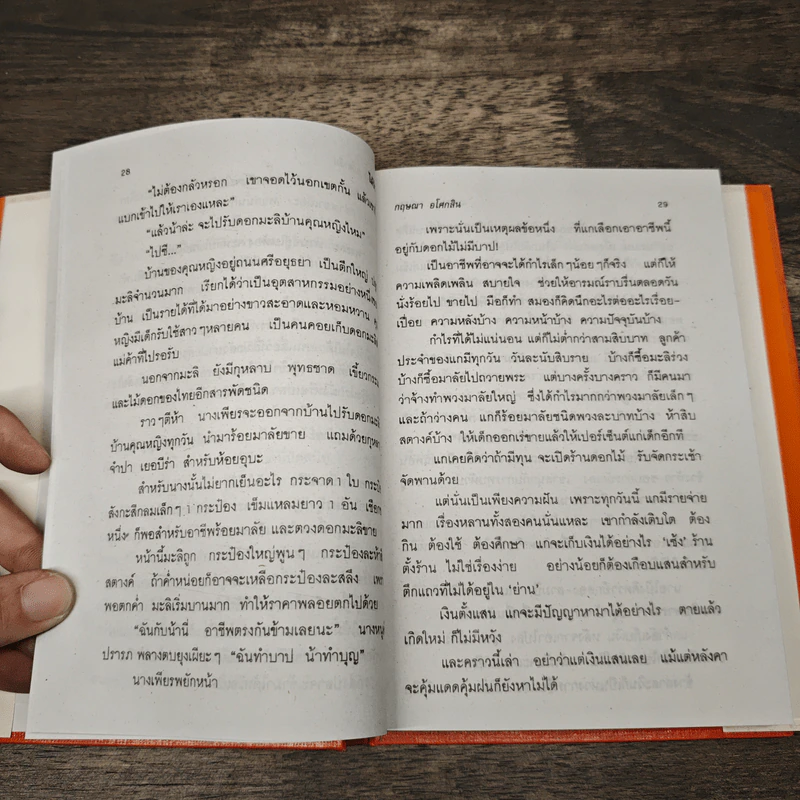 28
“ไม่ต้องกลัวหรอก เขาจอดไว้นอกเขตกั้น แล้ว
แบกเข้าไปให้เราเองแหละ”
“แล้วน้าล่ะ จะไปรับดอกมะลิบ้านคุณหญิงไหม”
“ไปซี...”
บ้านของคุณหญิงอยู่ถนนศรีอยุธยา เป็นตึกใหญ่
มะลิจำนวนมาก เรียกได้ว่าเป็นอุตสาหกรรมอย่างหนึ่ง
บ้าน เป็นรายได้ที่ได้มาอย่างขาวสะอาดและหอมหวาน
หญิงมีเด็กรับใช้สาวๆหลายคน เป็นคนคอยเก็บดอกมะลิ
แม่ค้าที่ไปรอรับ
นอกจากมะลิ ยังมีกุหลาบ พุทธชาด
และไม้ดอกของไทยอีกสารพัดชนิด
ราวๆตีห้า นางเพียรจะออกจากบ้านไปรับดอกมะลิ
บ้านคุณหญิงทุกวัน นำมาร้อยมาลัยขาย แถมด้วย
จำปา เยอบีร่า สำหรับห้อยอุบะ
สำหรับนางนั้นไม่ยากเย็นอะไร กระจาด 1 ใบ
สังกะสีกลมเล็กๆ 1 กระป๋อง เข็มแหลมยาว 1 อัน
หนึ่ง ก็พอสำหรับอาชีพร้อยมาลัย และตวงดอกมะลิขาย
หน้านี้มะลิถูก กระป๋องใหญ่พูนๆ กระป๋องละห้า
สตางค์ ถ้าค่ำหน่อยก็อาจจะเหลือกระป๋องละสลึง
พอตกค่ำ มะลิเริ่มบานมาก ทำให้ราคาพลอยตกไปด้วย
“ฉันกับน้านี่ อาชีพตรงกันข้ามเลยนะ”
ปรารภ พลางตบยุงเผียะๆ “ฉันทำบาป น้าทำบุญ”
นางเพียรพยักหน้า
กฤษณา อโศกสิน 29
เพราะนั่นเป็นเหตุผลข้อหนึ่ง ที่แกเลือกเอาอาชีพนี้
อยู่กับดอกไม้ไม่มีบาป!
เป็นอาชีพที่อาจจะได้กำไรเล็กๆน้อยๆก็จริง แต่ก็ให้
ความเพลิดเพลิน สบายใจ ช่วยให้อารมณ์ราบรื่นตลอดวัน
นั่งร้อยไป ขายไป มือก็ทำ สมองก็คิดนึกอะไรต่ออะไรเรื่อย-
เปื่อย ความหลังบ้าง ความหน้าบ้าง ความปัจจุบันบ้าง
กำไรที่ได้ไม่แน่นอน แต่ก็ไม่ต่ำกว่าสามสิบบาท ลูกค้า
ประจำของแกมีทุกวัน วันละนับสิบราย บ้างก็ซื้อมะลิร่วง
บ้างก็ซื้อมาลัยไปถวายพระ แต่บางครั้งบางคราว ก็มีคนมา
ว่าจ้างทำพวงมาลัยใหญ่ ซึ่งได้กำไรมากกว่าพวงมาลัยเล็กๆ
และถ้าว่างคน แกก็ร้อยมาลัยชนิดพวงละบาทบ้าง ห้าสิบ
สตางค์บ้าง ให้เด็กออกเร่ขายแล้วให้เปอร์เซ็นต์แก่เด็กอีกที
แกเคยคิดว่าถ้ามีทุน จะเปิดร้านดอกไม้ รับจัดกระเช้า
จัดพานด้วย
แต่นั่นเป็นเพียงความฝัน เพราะทุกวันนี้ แกมีรายจ่าย
มาก เรื่องหลานทั้งสองคนนั่นแหละ เขากำลังเติบโต ต้อง
กิน ต้องใช้ ต้องศึกษา แกจะเก็บเงินได้อย่างไร ‘เซ้ง’ ร้าน
ตั้งร้าน ไม่ใช่เรื่องง่าย อย่างน้อยก็ต้องเกือบแสนสำหรับ
ตึกแถวที่ไม่ได้อยู่ใน ‘ย่าน’
เงินตั้งแสน แกจะมีปัญญาหามาได้อย่างไร ตายแล้ว
เกิดใหม่ ก็ไม่มีหวัง
และคราวนี้เล่า อย่าว่าแต่เงินแสนเลย แม้แต่หลังคา
จะคุ้มแดดคุ้มฝนก็ยังหาไม่ได้